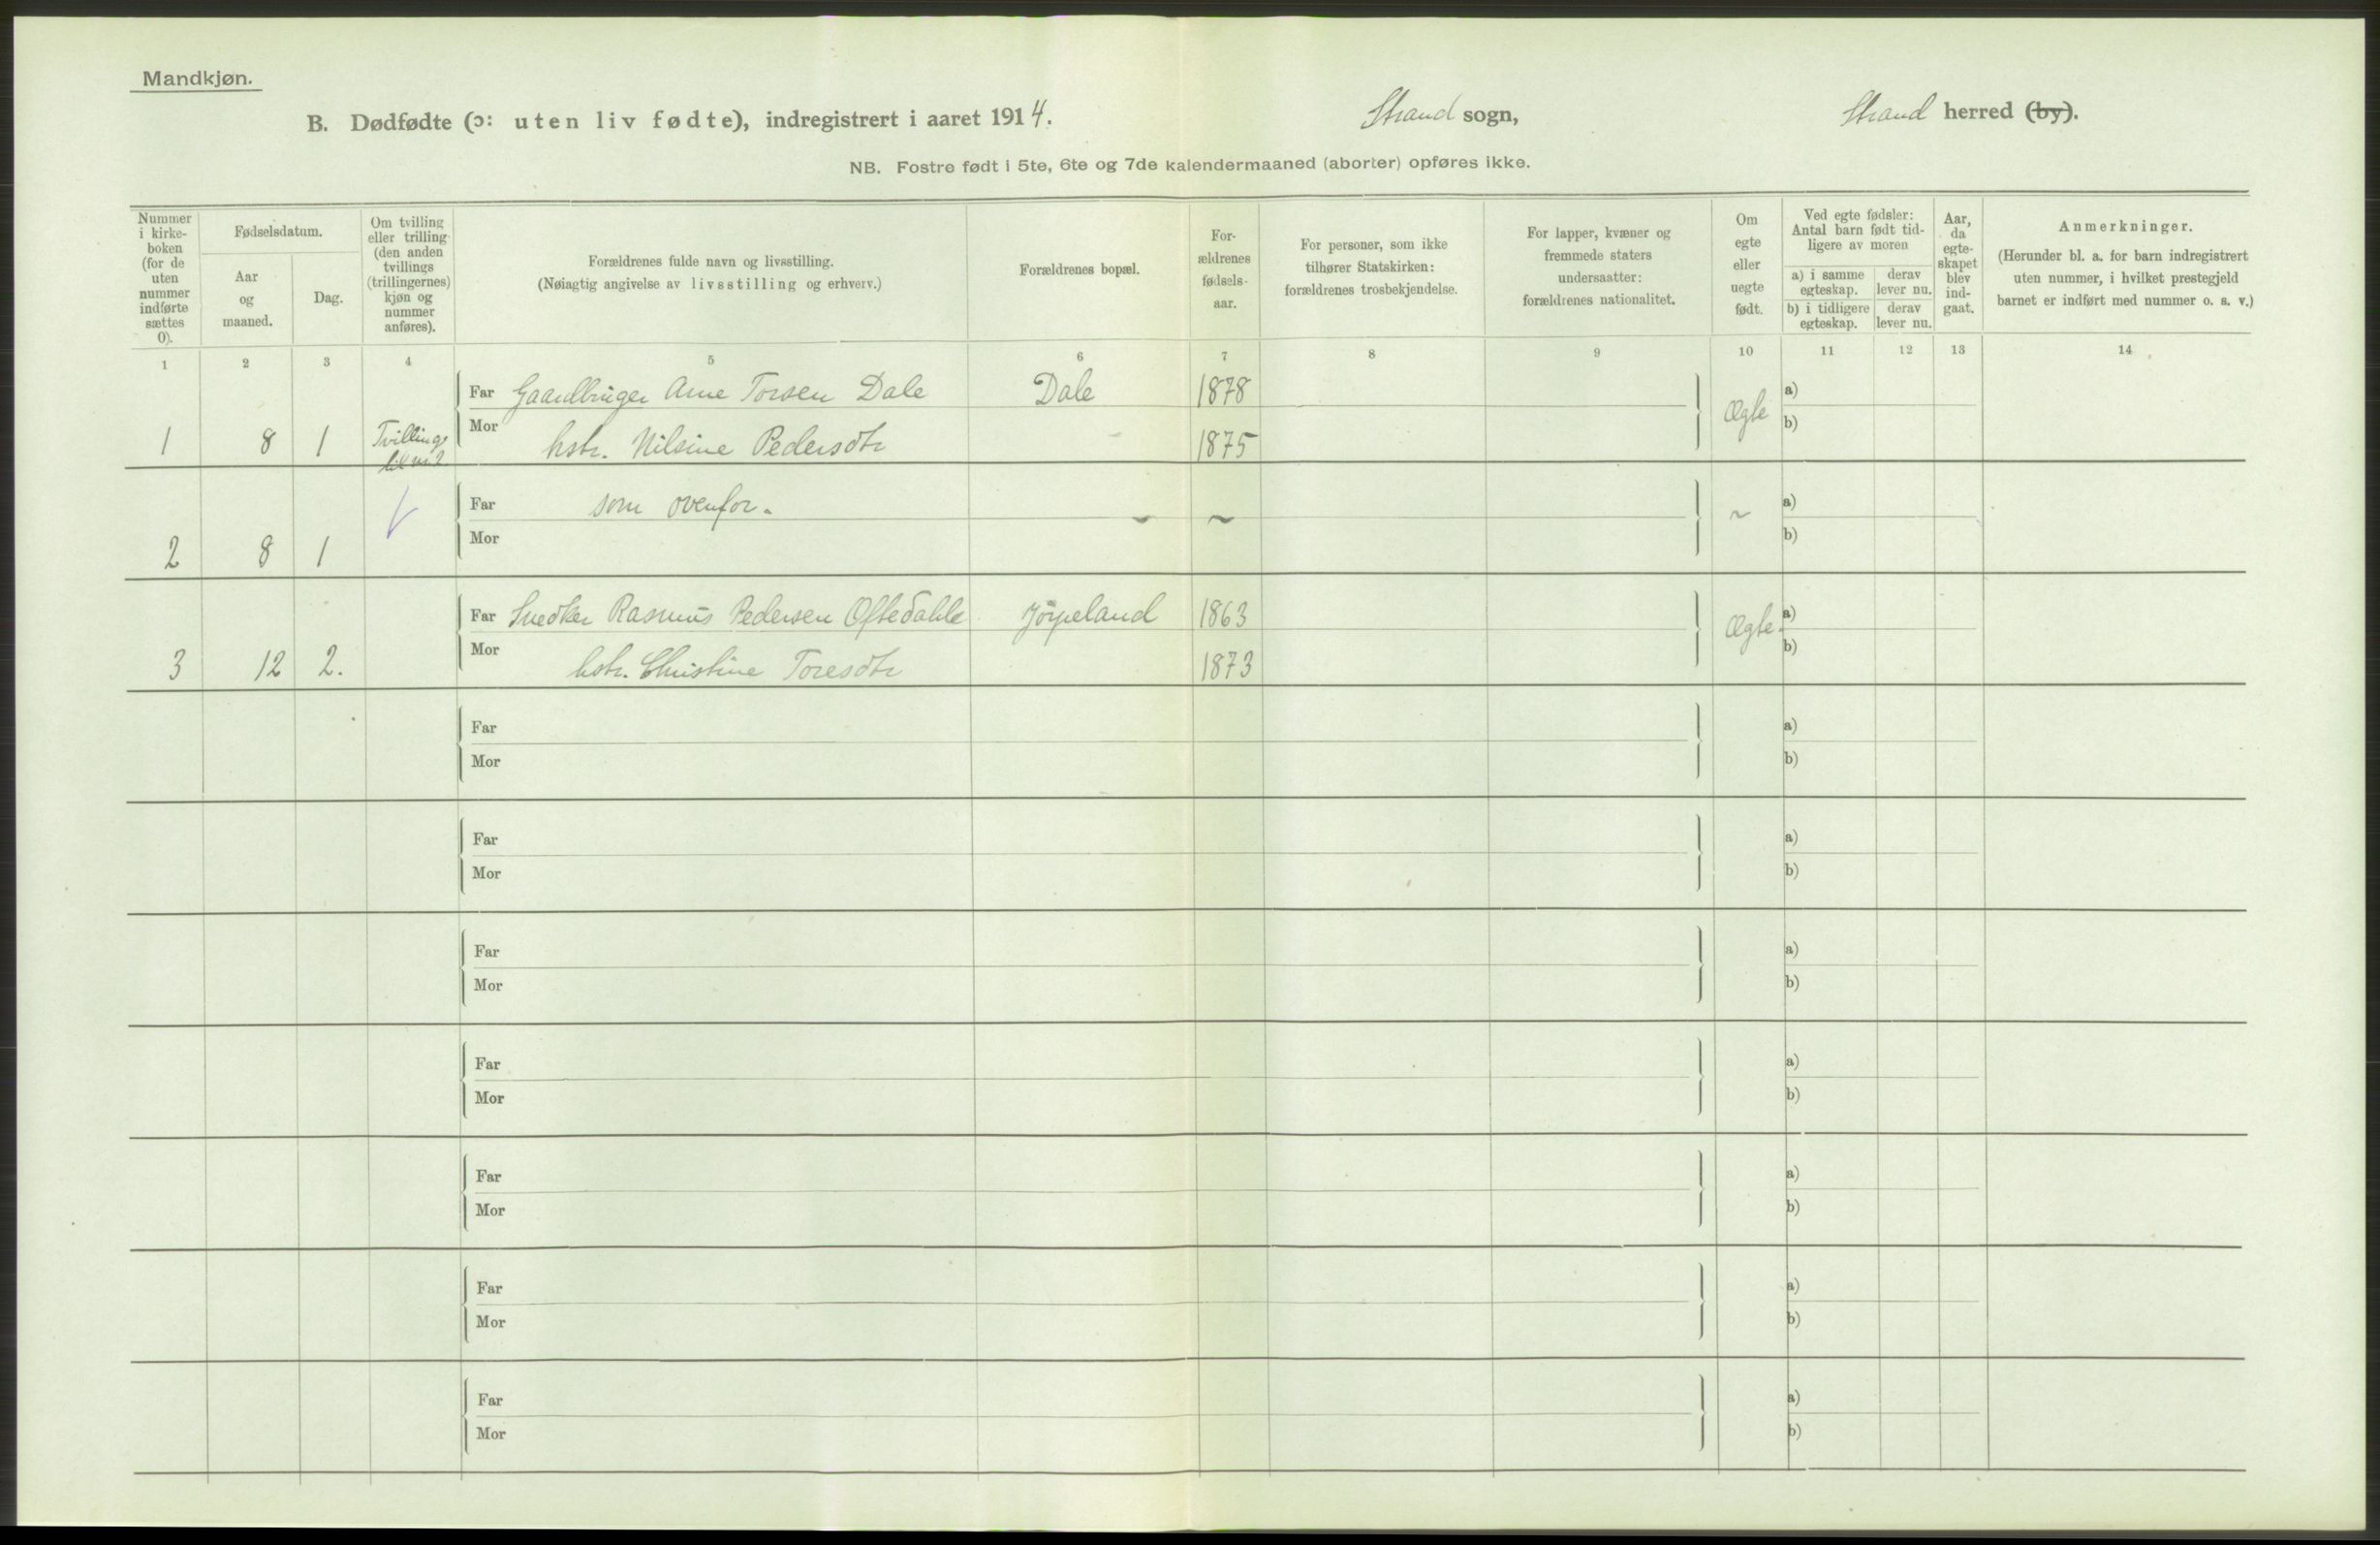 Mandkjøn.
B. Dødfødte (ɔ: uten liv fødte), indregistrert i aaret 1914. Strand sogn, Strand herred (by).
NB. Fostre født i 5te, 6te og 7de kalendermaaned (aborter) opføres ikke.
Nummer i kirke-boken (for de uten nummer indførte sættes 0).
Fødselsdatum.
Aar og maaned.
Dag.
Om tvilling eller trilling (den anden tvillings (trillingernes) kjøn og nummer anføres).
Forældrenes fulde navn og livsstilling.
(Nøiagtig angivelse av livsstilling og erhverv.)
Forældrenes bopæl.
For-ældrenes fødsels-aar.
For personer, som ikke tilhører Statskirken: forældrenes trosbekjendelse.
For lapper, kvæner og fremmede staters undersaatter: forældrenes nationalitet.
Om egte eller uegte født.
Ved egte fødsler: Antal barn født tid-ligere av moren
a) i samme egteskap.
derav lever nu.
b) i tidligere egteskap.
derav lever nu.
Aar, da egte-skapet blev ind-gaat.
Anmerkninger.
(Herunder bl. a. for barn indregistrert uten nummer, i hvilket prestegjeld barnet er indført med nummer o. s. v.)
1 2 3 4 5 6 7 8 9 10 11 12 13 14
Far Gaardbruger Arne Torsen Dale Dale 1878 Ægte a)
1 8 1 Tvilling til nr. 2 Mor hstr. Nilsine Pedersdtr 1875 b)
Far som ovenfor. ~ ~ ~ a)
2 8 1 Mor b)
Far Snedker Rasmus Pedersen Oftedahle Jørpeland 1863 Ægte. a)
3 12 2. Mor hstr. Christine Toresdtr 1873 b)
Far a)
Mor b)
Far a)
Mor b)
Far a)
Mor b)
Far a)
Mor b)
Far a)
Mor b)
Far a)
Mor b)
Far a)
Mor b)